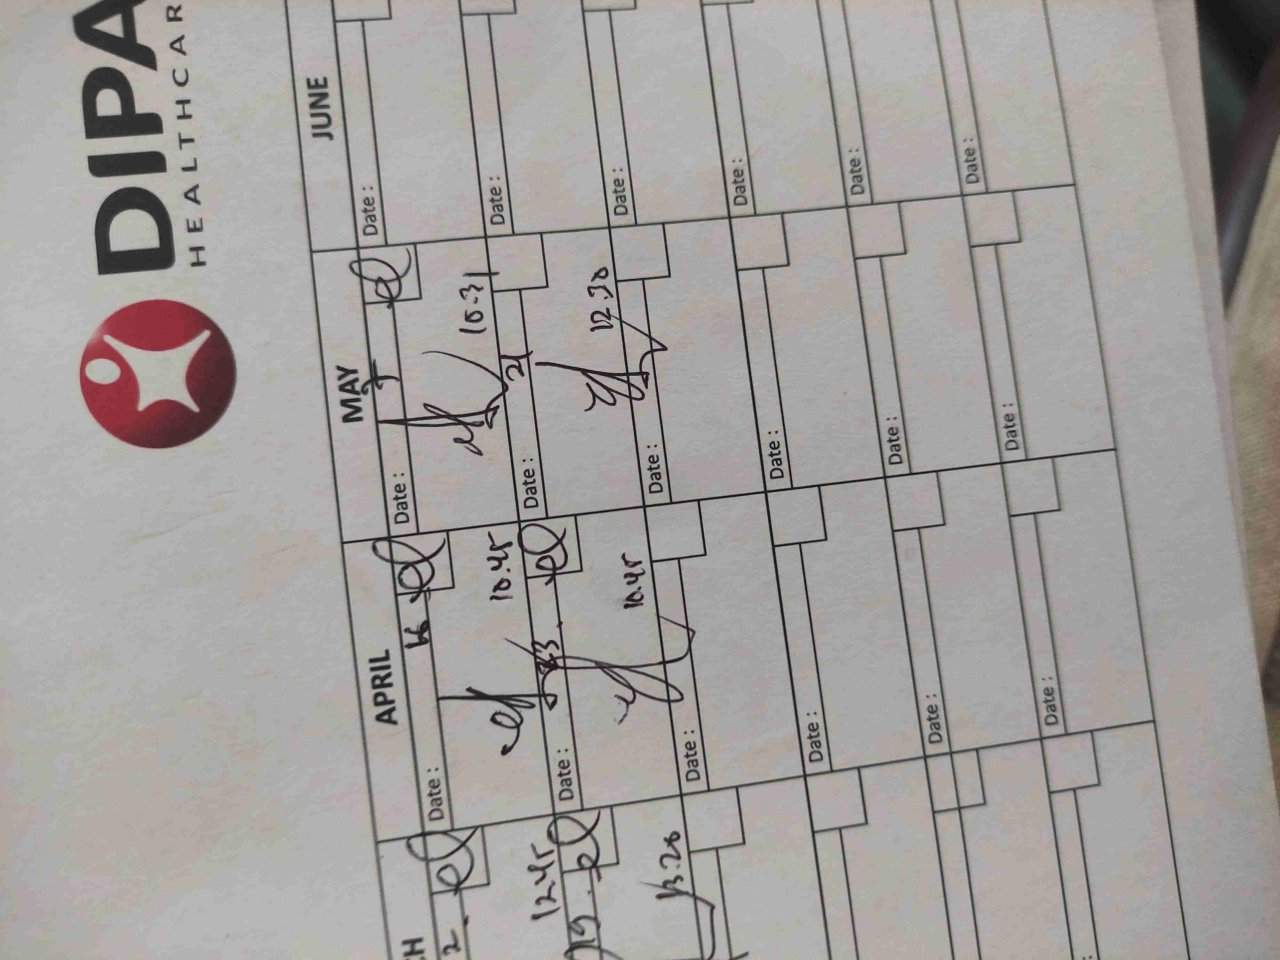 DIPA
HEALTHCAR
CH
APRIL
MAY
JUNE
2.
Date : 16
Date : 7
Date :
12.45
10.45
10.31
19.
Date : 23.
Date : 21
Date :
13.20
10.45
12.30
Date :
Date :
Date :
Date :
Date :
Date :
Date :
Date :
Date :
Date :
Date :
Date :